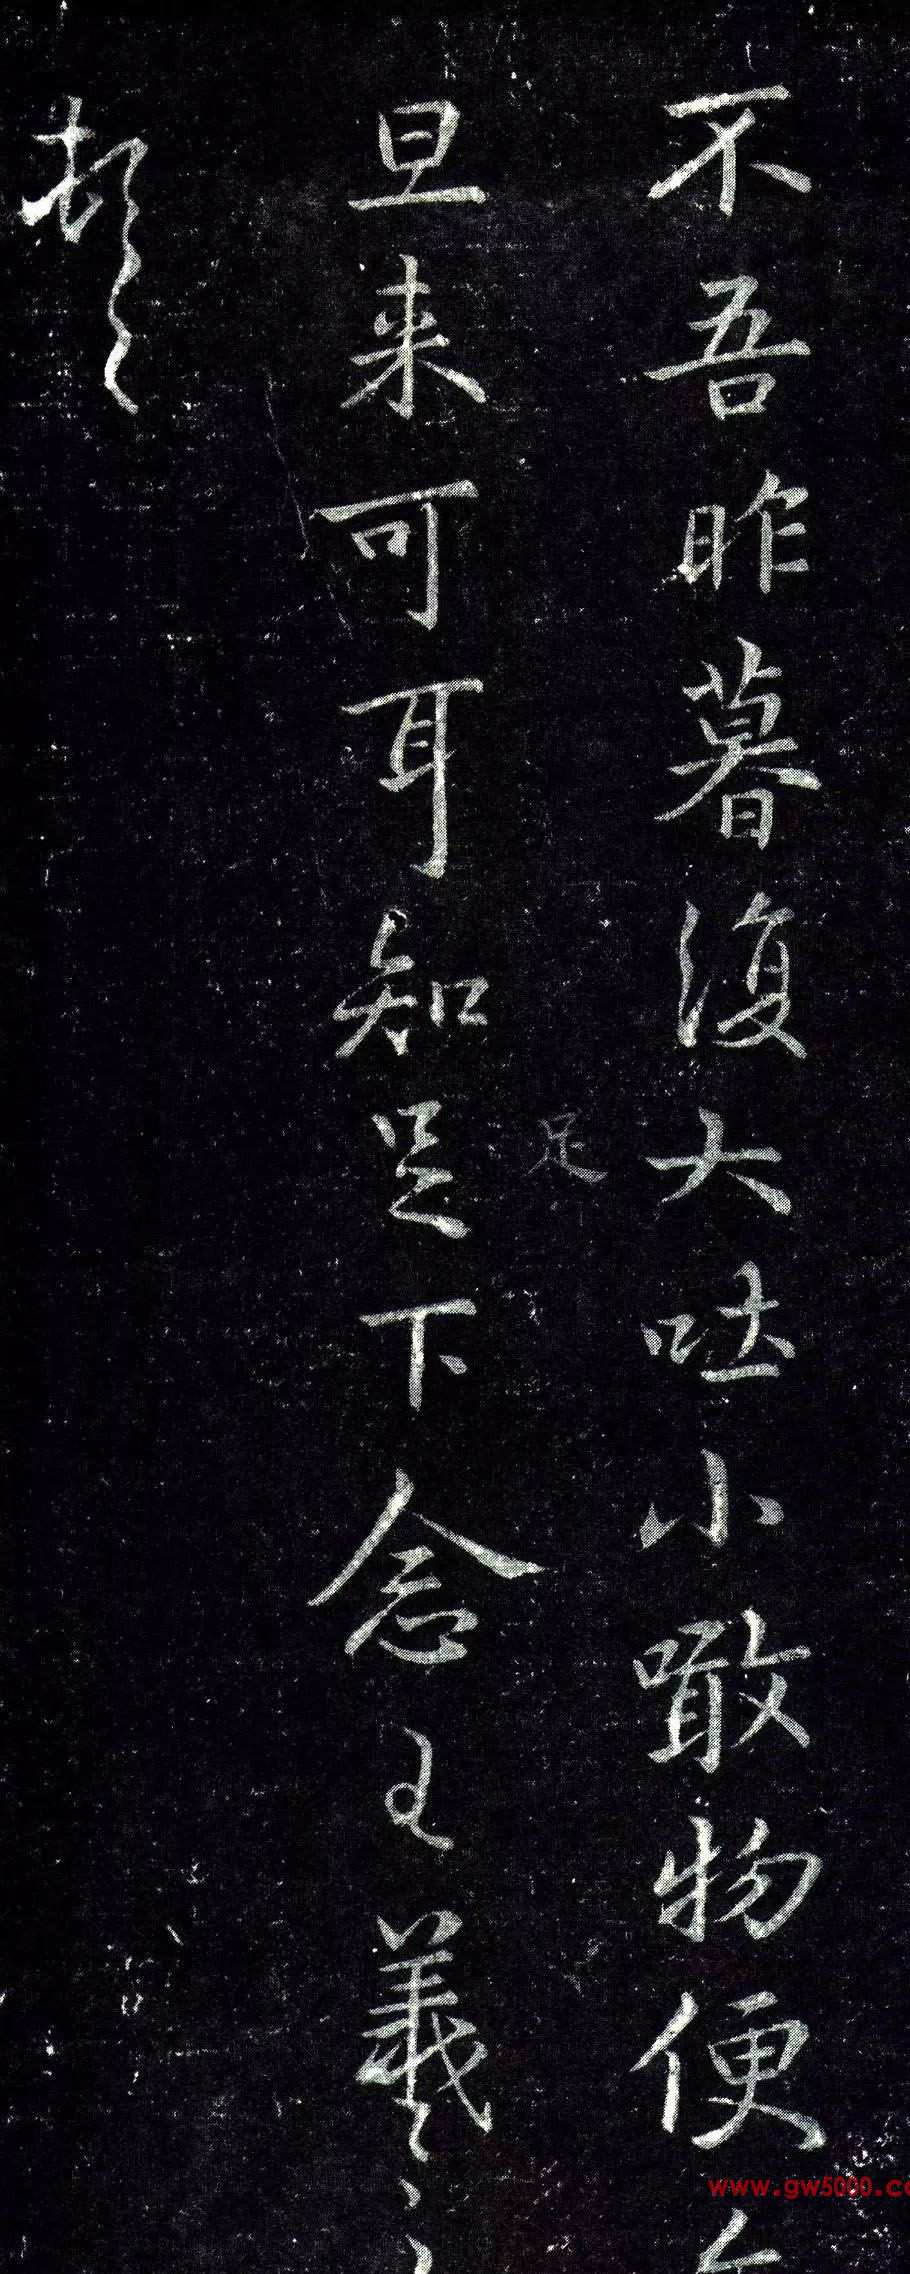 不吾昨暮復大吐小噉物便
旦来可耳知足下念王羲之
足
頓
www.gw5000.co